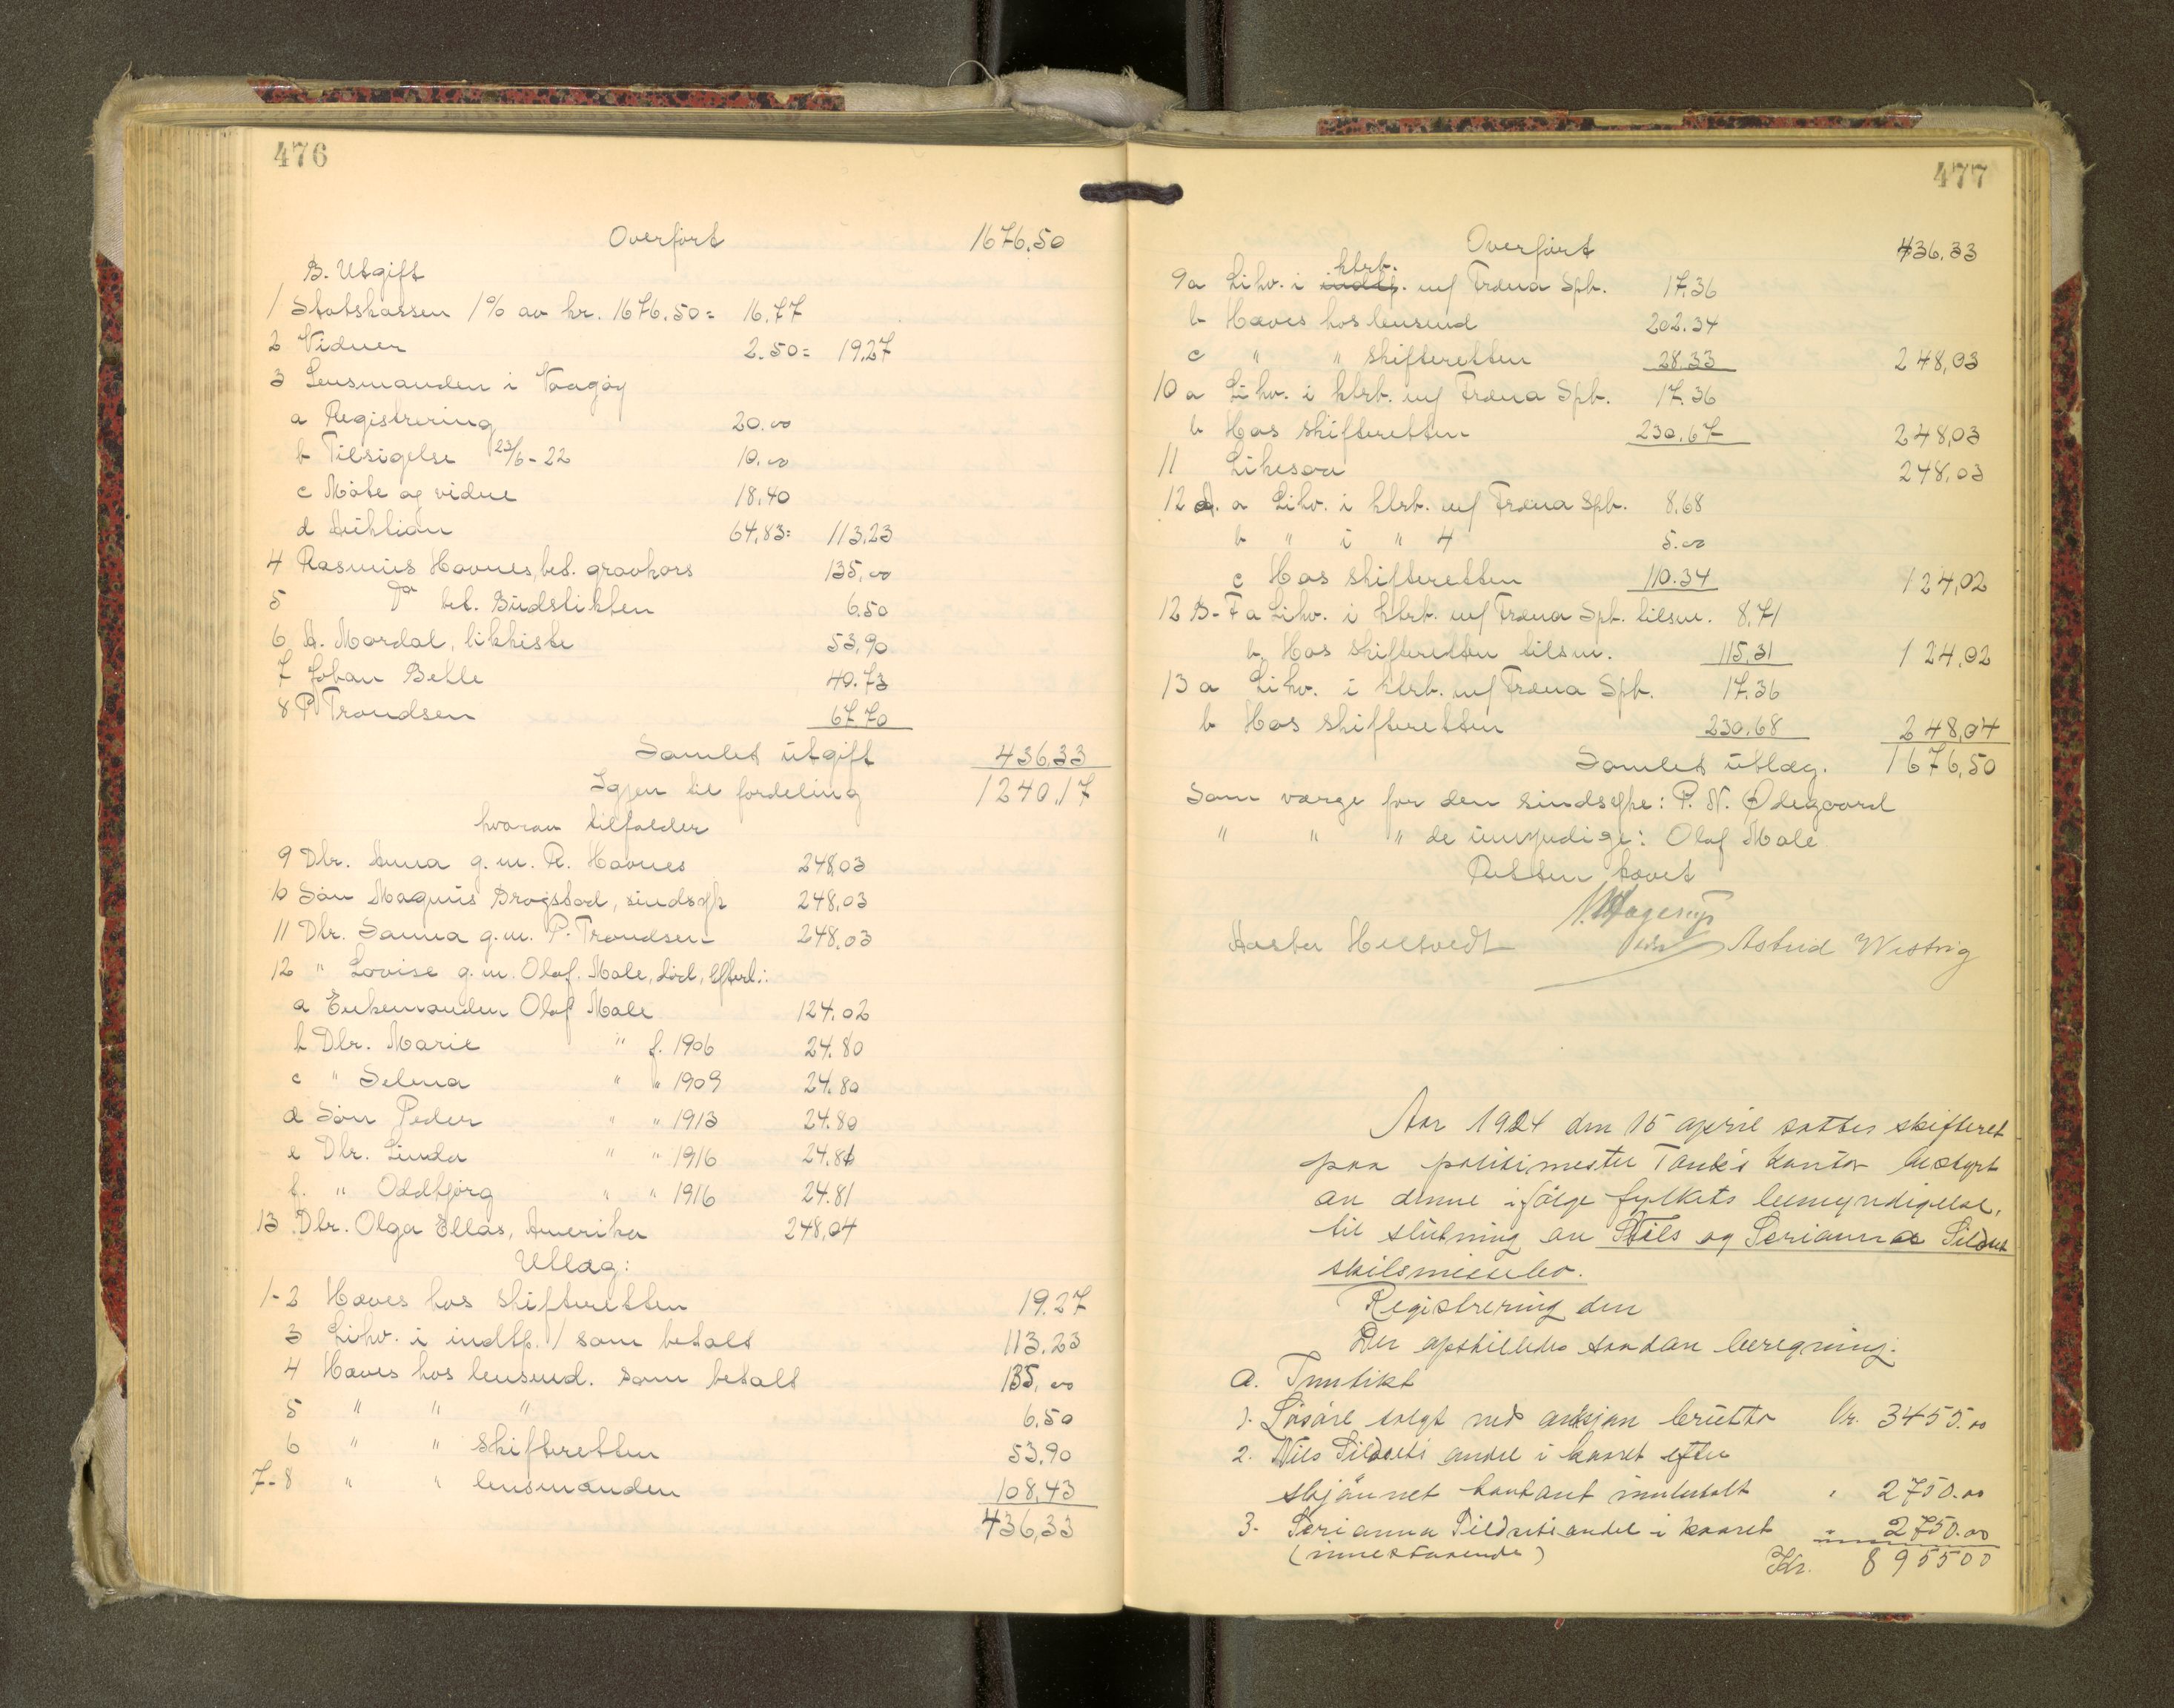 476
Overført 1676,50
B. Utgift
1 Statskassen 1% av kr. 1676.50= 16.77
2 Vidner 2.50= 19.27
3 Lensmanden i Vaagøy
a Registrering 20.00
b Tilsigelse 23/6-22 10.00
c Møte og vidne 18.40
d Auktion 64.83= 113.23
4 Rasmus Havnes, bet. gravkors 135,00
5 do bet. Budstikken 6.50
6 A. Mordal, likkiste 53,90
7 Johan Belle 40.73
8 P Trondsen 67.70
Samlet utgift 436,33
Igjen til fordeling 1240,17
hvorav tilfalder
9 Dtr. Anna g.m. R. Havnes 248,03
10 Søn Magnus Drogstad, sindssyk 248,03
11 Dtr. Sanna g.m. P. Trondsen 248,03
12 " Lovise g.m. Olaf Male, død, Efterl.:
a Enkemanden Olaf Male 124.02
b Dtr. Marie " f. 1906 24.80
c " Selma " " 1909 24.80
d Søn Peder " " 1913 24.80
e Dtr. Linda " " 1916 24.81
f. " Oddbjørg " " 1916 24.81
13 Dtr. Olga Ellas, Amerika 248,04
Utlæg:
1-2 Hæves hos skifteretten 19.27
3 Likv. i indtp. 1 som betalt 113.23
4 Hæves hos lensmd. som betalt 135,00
5 " " " 6.50
6 " " skifteretten 53,90
7-8 " " lensmanden 108,43
436,33
477
Overført 436,33
9a Likv. i indtp. ktrb. m/ Fræna Spb. 17.36
b Hæves hos lensmd 202.34
c " " skifteretten 28.33 248,03
10 a Likv. i ktrb. m/ Fræna Spb. 17.36
b Hos skifteretten 230.67 248,03
11 Likesaa 248,03
12 A. a Likv. i ktrb. m/ Fræna Spb. 8.68
b " i " 4 5.00
c Hos skifteretten 110.34 124,02
12 B-F a Likv. i ktrb. m/ Fræna Spb. tilsm. 8.71
b Hos skifteretten tilsm. 115,31 124,02
13 a Likv. i ktrb. m/ Fræna Spb. 17.36
b Hos skifteretten 230.68 248,04
Samlet utlæg. 1676,50
Som værge for den sindssyke: P. N. Ødegaard
" " " de umyndige: Olaf Male
Retten hævet
Hagerup
Astrid Westvig
Aar 1924 den 15 april sattes skifteret
paa politimester Tank's kontor bestyrt
av denne ifølge fylkets bemyndigelse,
til slutning av Nils og Serianna Sildset
skilsmissebo.
Registrering den
Der opstilledes saadan beregning:
A. Inntekt
1. Løsøre solgt ved auksjon brutto kr. 3455.00
2. Nils Sildsets andel i kaaret efter
skjønnet kontant innbetalt " 2750.00
3. Serianna Sildsets andel i kaaret " 2750.00
(innestaaende) Kr. 8955 00